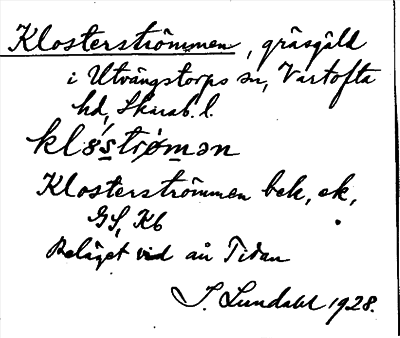 Klosterströmmen, gräsgäld
i Utvängstorps sn, Vartofta
hd, Skarab. l.
klǿstrǿmən
Klosterströmmen bek, ek,
GS, Kb
Beläget vid ån Tidan
I. Lundahl 1928.